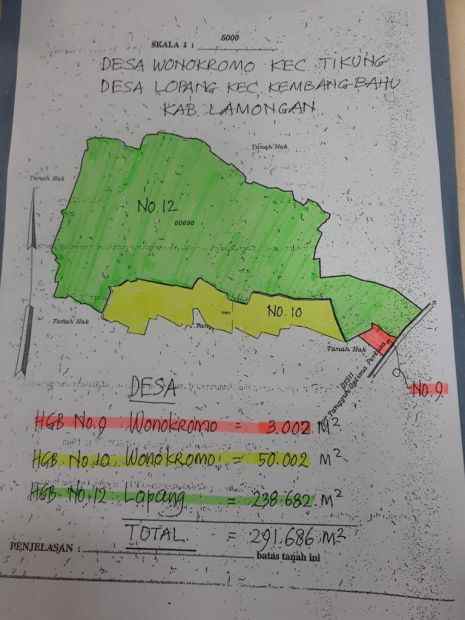 SKALA 1 : 5000
DESA WONOKROMO KEC TIKUNG
DESA LOPANG KEC KEMBANGBAHU
KAB LAMONGAN
Tanah Hak
Tanah Hak
No.12
60698
No. 10
Tanah Hak
Tanah Hak
No.9
DESA
HGB No.9 Wonokromo = 3.002 M²
HGB No.10 Wonokromo = 50.002 M²
HGB No.12 Lopang = 238.682 M²
TOTAL = 291.686 M²
PENJELASAN :
batas tanah ini